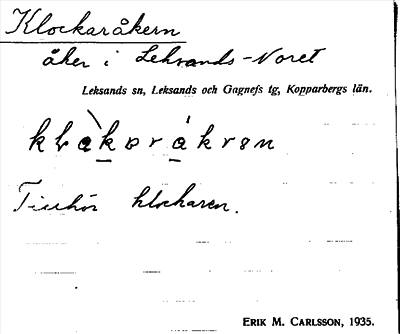 Klockaråkern
åker i Leksands-Noret
Leksands sn, Leksands och Gagnefs tg, Kopparbergs län.
Tillhör klockaren.
ERIK M. CARLSSON, 1935.